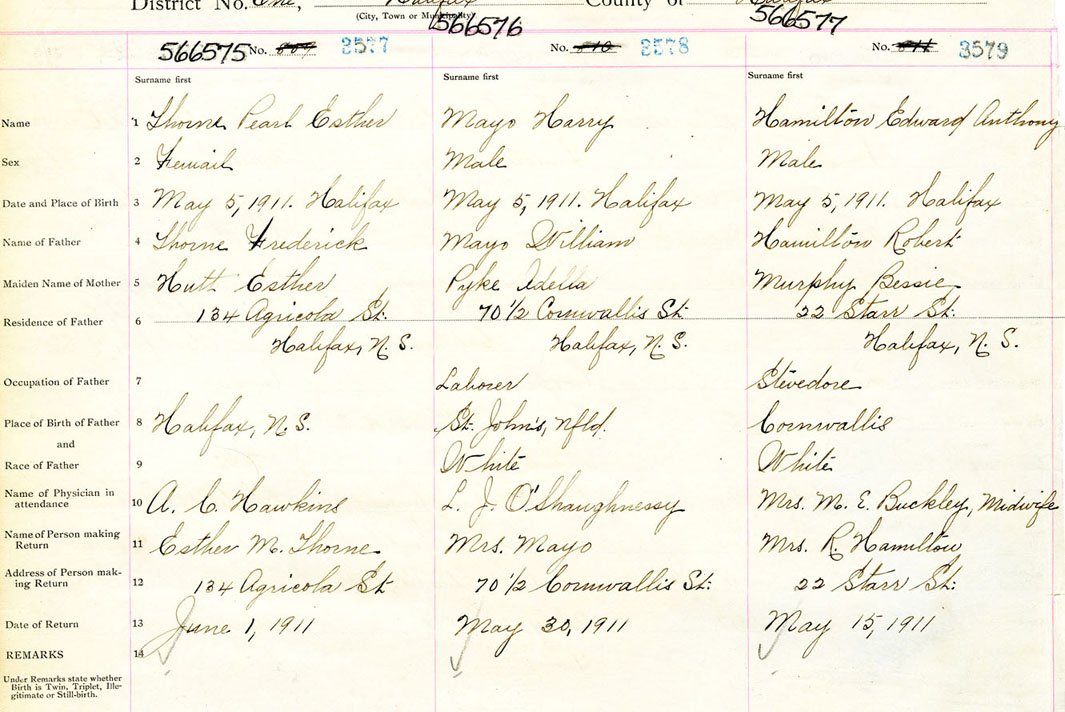 District No. One, Halifax County of Halifax
(City, Town or Municipality)
566575 No. 809 3577 566576 No. 810 3578 566577 No. 811 3579
Surname first Surname first Surname first
Name 1 Thorne Pearl Esther Mayo Harry Hamilton Edward Anthony
Sex 2 Femail Male Male
Date and Place of Birth 3 May 5, 1911. Halifax May 5, 1911. Halifax May 5, 1911. Halifax
Name of Father 4 Thorne Frederick Mayo William Hamilton Robert
Maiden Name of Mother 5 Hutt Esther Pyke Adelia Murphy Bessie
Residence of Father 6 134 Agricola St. 70 1/2 Cornwallis St. 22 Starr St.
Halifax, N.S. Halifax, N.S. Halifax, N.S.
Occupation of Father 7 Laborer Stevedore
Place of Birth of Father 8 Halifax, N.S. St. John's, Nfld. Cornwallis
and
Race of Father 9 White White
Name of Physician in
attendance 10 A. C. Hawkins L. J. O'Shaughnessy Mrs. M. E. Buckley, Midwife
Name of Person making
Return 11 Esther M. Thorne Mrs. Mayo Mrs. R. Hamilton
Address of Person mak-
ing Return 12 134 Agricola St 70 1/2 Cornwallis St. 22 Starr St.
Date of Return 13 June 1, 1911 May 30, 1911 May 15, 1911
REMARKS 14
Under Remarks state whether
Birth is Twin, Triplet, Ille-
gitimate or Still-birth.